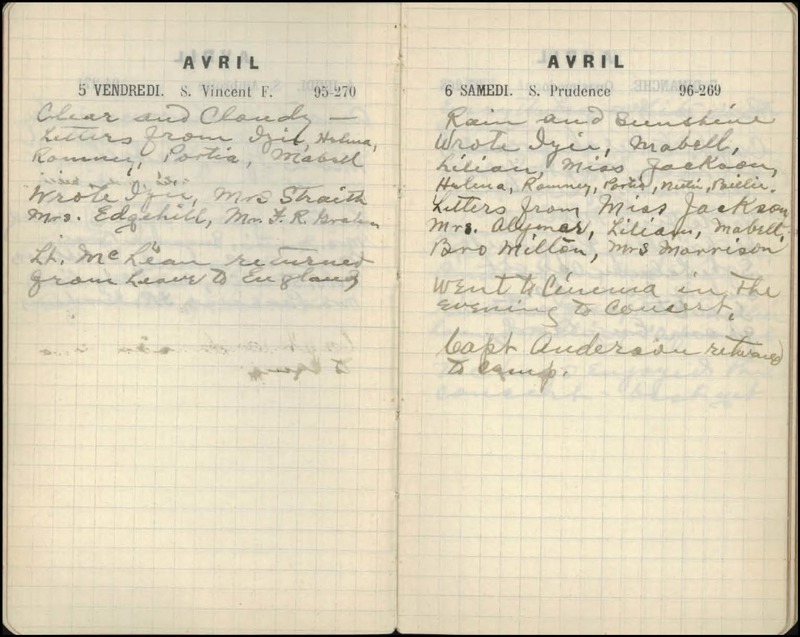 AVRIL
5 VENDREDI. S. Vincent F. 95-270
Clear and Cloudy —
Letters from Izie, Helma,
Romney, Portia, Mabell
Wrote Izie, Mrs Straith
Mrs. Edgehill, Mr. F. R.
Lt. McLean returned
from Leave to England
AVRIL
6 SAMEDI. S. Prudence 96-269
Rain and Sunshine
Wrote Izie, Mabell,
Lilian, Miss Jackson,
Helma, Romney,
Letters from Miss Jackson
Mrs. Alymer, Lilian, Mabell,
Bro Milton, Mrs Morrison
Went to Cinema in the
evening to concert.
Capt Anderson returned
to camp.